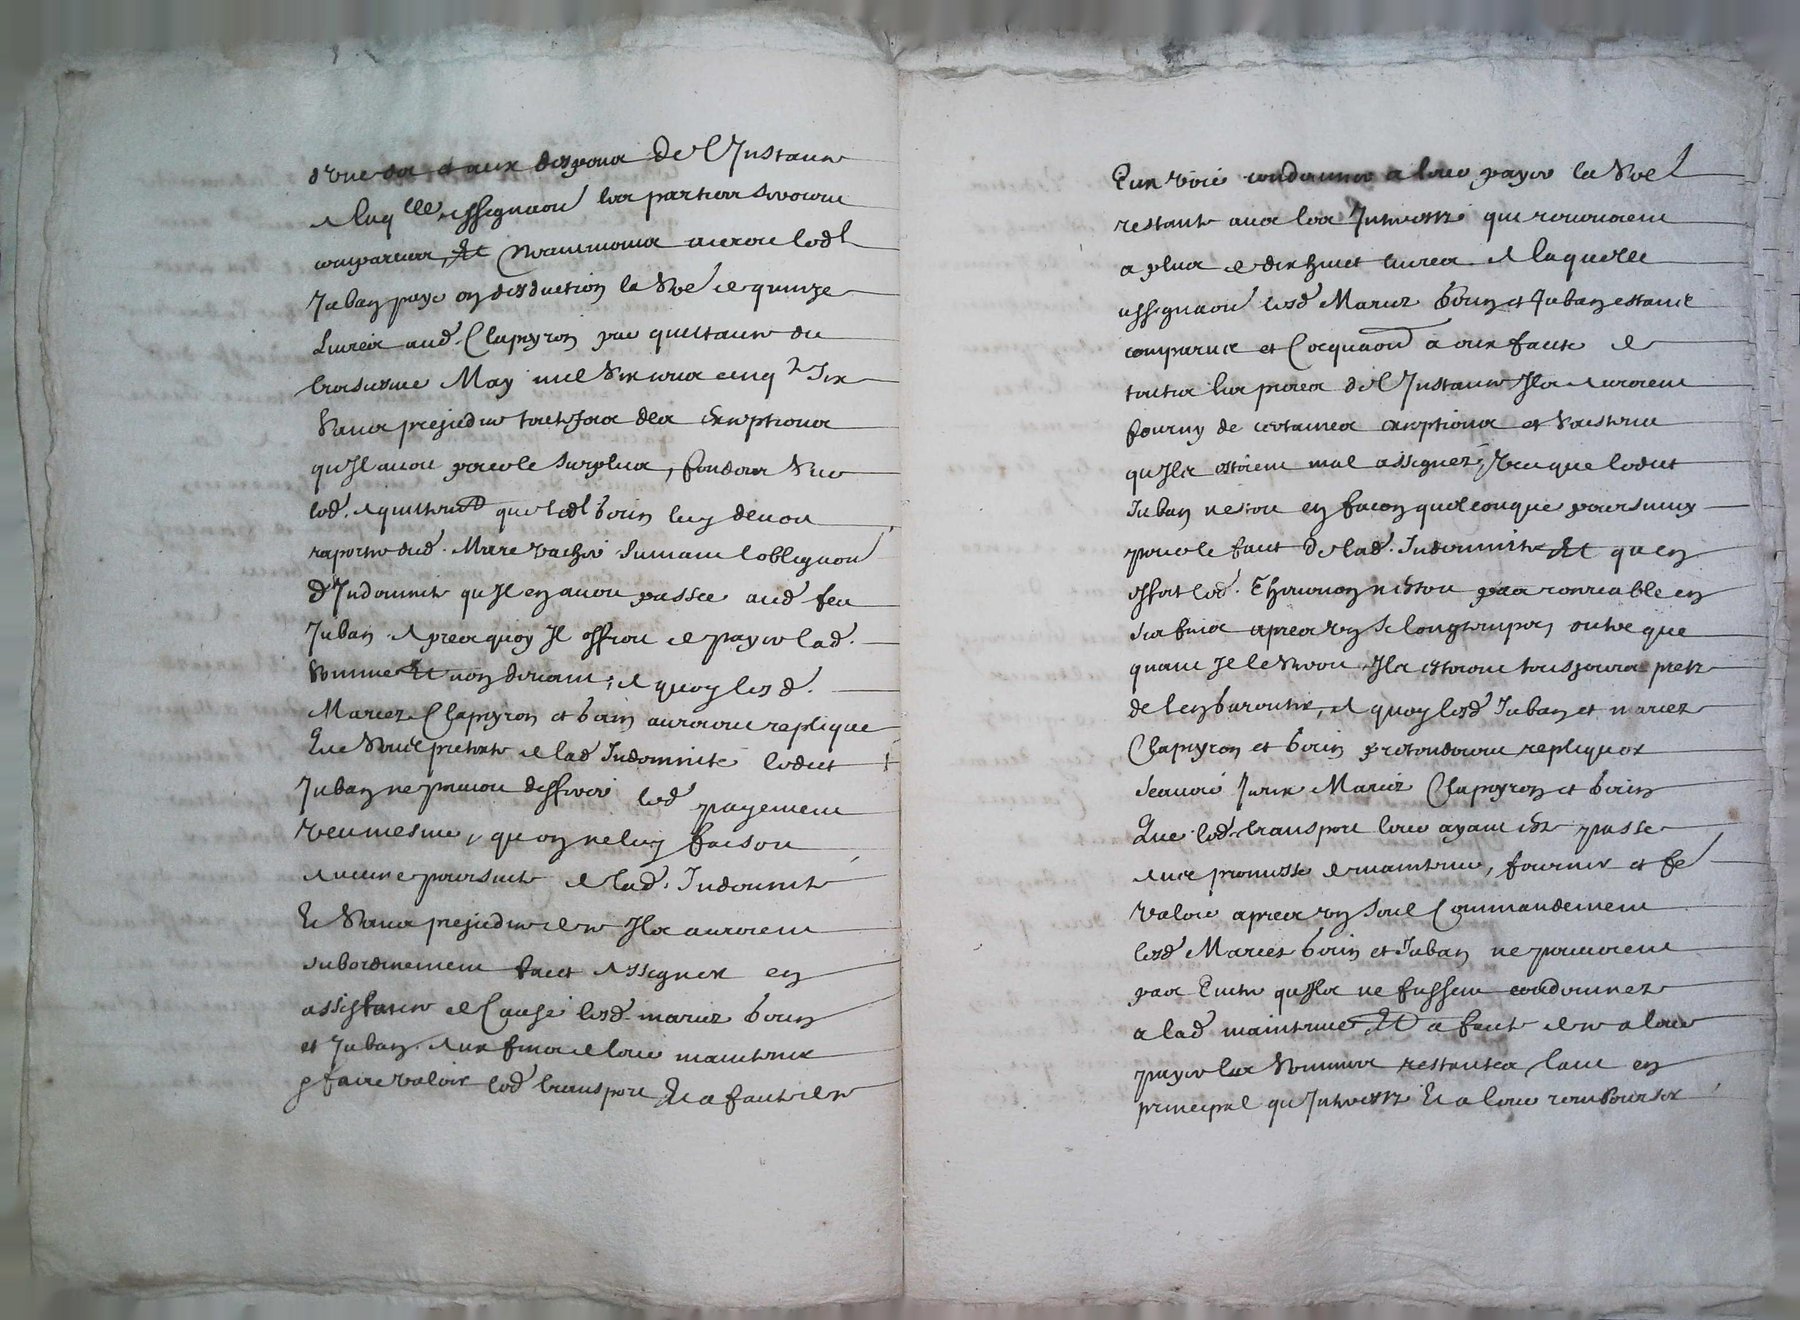 et aux despens de l'Instance
a laq^lle assignaon les parties seroient
comparues, Et Neanmoins auroit led^t
Juban paye en desduction la so^e de quinze
Livres aud. Clapeyron par quittance du
May mil six cens cinq^te six
Sans prejudice toutesfois des exceptions
qu'Il avoit pour le surplus, fondees sur
led. que led^t borin luy devoit
raporter dud. Marc vachier l'obligaon
d'Indemnite qu'Il en avoit passee aud feu
Juban Apres quoy Il offroit de payer lad.
somme Et non devant; A quoy lesd.
Mariez Clapeyron et borin auroient replique
Que soubz pretexte de lad Indemnite ledict
Juban ne pouvoit differer led payement
veu mesme, qu'on ne luy faisoit
Aucune poursuite de lad. Indemnite
Et sans prejudice de ce Ils auroient
subordinement faict Assigner en
assistance de Cause lesd mariez borin
et Juban Aux fins de leur maintenir
& faire valoir led transport Et a faute de ce
Eux veoir condamner a leur payer la so^e
restante avec les Interestz qui revenoient
a plus de dix huict livres A laquelle
assignaon lesd Mariez borin et Juban estantz
comparuz et Cocquaon a eux faite de
toutes les pieces de l'Instance Ils Auroient
fourny de certaines exceptions et soustenu
qu'Ils estoient mal assignez, veu que ledict
Juban n'estoit en facon quelconque poursuivy
pour le faict de lad. Indemnite Et qu'en
effect led. n'estoit pas recevable en
ses fins apres un si long temps, outre que
quant Il le seroit Ils estoient tousjours pretz
de l'en garentir, A quoy lesd Juban et mariez
Clapeyron et borin pretendoient repliquer
Scavoir Iceux Mariez Clapeyron et borin
Que led transport leur ayant este passe
Avec promesse de maintenir, fournir et fe^
valoir apres un seul Commandement
lesd Mariez borin et Juban ne pouvoient
pas Eviter qu'Ils ne fussent condamnez
a lad maintenue Et a faute de ce a leur
payer les sommes restantes tant en
principal qu'Interestz Et a leur rembourser